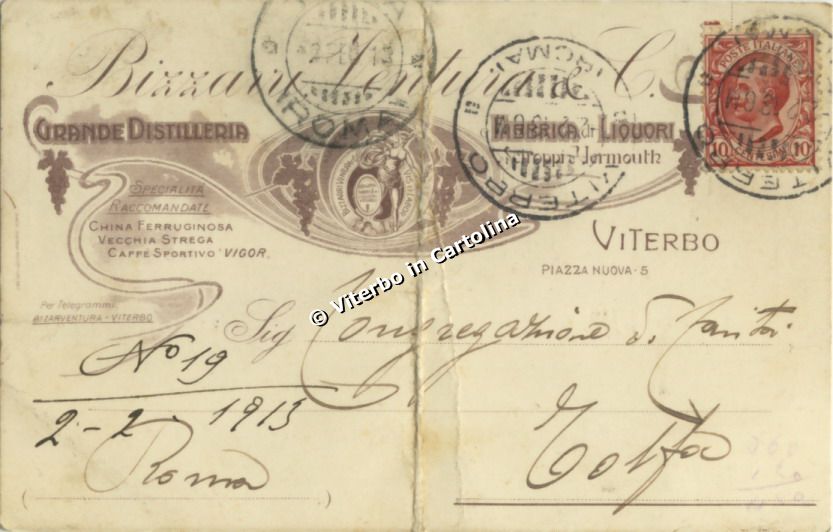 Bizzarri Ventura & C.
GRANDE DISTILLERIA
FABBRICA di LIQUORI
Sciroppi Vermouth
SPECIALITÀ
RACCOMANDATE
CHINA FERRUGINOSA
VECCHIA STREGA
CAFFÈ SPORTIVO "VIGOR"
VITERBO
PIAZZA NUOVA - 5
Per Telegrammi:
BIZARVENTURA - VITERBO
POSTE ITALIANE
10 10
ROMA
VITERBO
ROMA
VITERBO
© Viterbo in Cartolina
Sig. Congregazione di Carità
No 19
2-2. 1913
Tolfa
(Roma)